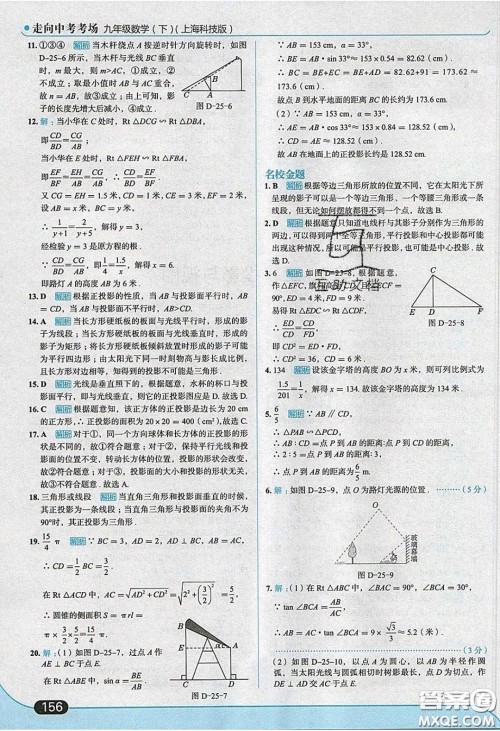 走向中考考场 九年级数学(下)(上海科技版)
11. ①③④ 解析 当木杆绕点 A 按逆时针方向旋转时，如图
D-25-6 所示，当木杆与光线 BC 垂直
时，m 最大，则 m>AC，①成立，②
不成立；取最小值时 AB 与 AC 重合，
故 n=AB，故③成立；由上可知，影
子的长先增大后减小，④成立．
图 D-25-6
12. 解：当小华在 C 处时，Rt △DCG ∽ Rt △DBA，
即 CD/BD = CG/AB，
当小华在 E 处时，Rt △FEH ∽ Rt △FBA，
即 EF/BF = EH/AB = CG/AB，∴ CD/BD = EF/BF．
又 CG=EH=1.5 米，CD=1 米，CE=3 米，EF=2 米，
设 AB=x 米，BC=y 米，
∴ 1/(y+1) = 2/(y+5)，解得 y=3，
经检验 y=3 是原方程的根．
∵ CD/BD = CG/AB，即 1/4 = 1.5/x，解得 x=6．
即路灯 A 的高度 AB 为 6 米．
13. D 解析 根据正投影的性质，当 AB 与投影面平行时，AB
=CD，当 AB 与投影面不平行时，AB 大于 CD．
14. A 解析 当长方形硬纸板的板面与光线平行时，形成的影
子为线段；当长方形硬纸板的板面与光线垂直时，形成的
影子为矩形；将长方形硬纸板倾斜放置时形成的影子可能
为平行四边形；由太阳光下同一时刻物高与影长成比例，
且长方形对边相等，知得到的投影不可能是三角形．
15. D 解析 光线是垂直照下的，根据题意，水杯的杯口与投
影面平行，即与光线垂直，则它的正投影图应是 D．故选 D．
16. D 解析 根据题意知，该正方体的正投影是边长为 20 cm
的正方形，∴ 正投影的面积为 20×20=400（cm²）．故选 D．
17. A 解析 对于①，同一个方向球体和长方体的正投影的形
状一样，故①符合题意；对于②，球体旋转时光线和投影
面的位置不变，转动长方体的位置，投影的形状会改变，
故②符合题意；对于③，平移长方体时投影的形状无变化，
故③不符合题意；对于④，平移球体时投影的形状无变化，
故④不符合题意．故选 A．
18. 三角形或线段 解析 当直角三角形和投影面垂直时，其
正投影为线段；当直角三角形与投影面的夹角不为
90°时，其正投影为三角形．
19. 15/4 π 解析 ∵ BC=3，AD=2，∴ BC=3，AD=2，
∴ CD = 1/2 BC = 3/2．
在 Rt △ACD 中，AC=√(AD²+CD²)=√(2²+(3/2)²)=5/2，
∴ 圆锥的侧面积 S=πrl= π×3/2×5/2=15/4 π．
20. 解：（1）如图 D-25-7，过点 A 作
AE ⊥ BC 于点 E．
在 Rt △ABE 中，sin α= BE/AB，
图 D-25-7
∵ AB=153 cm，α=33°，
∴ BE=AB·sin 33°≈153×0.54=82.62（cm）．
∴ BC=BE+EC=BE+AD=82.62+91
≈173.6（cm）．
故点 B 到水平地面的高度 BC 的长约为 173.6 cm．
（2）∵ AB=153 cm，α=33°，
∴ AE=AB·cos 33°≈153×0.84=128.52（cm），
∴ CD=AE=128.52（cm）．
故 AB 在地面上的正投影长约是 128.52 cm．
名校金题
1. B 解析 根据等边三角形所放的位置不同，它在太阳光下所
呈现的影子可以是一个等边三角形，一个等腰三角形或一条
线段，但无论如何摆放都得不到一个点．故选 B．
2. D 解析 根据题意只知道电线杆与其影子分别作为三角形的
两边，可以得到两个全等三角形，平行投影和中心投影都可能
出现这种情况，所以可能是平行投影，也可能是中心投影．故
选 D．
3. 6 解析 如图 D-25-8，根据题意，
作△EFC，
90°，ED=4 m，FD=9 m．
易得 Rt △EDC ∽ Rt △FDE，
∴ ED/FD = CD/ED，
∴ CD²=36，CD=6 m．
图 D-25-8
4. 134 解析 设该金字塔的高度 BO 为 x 米，则可列比例式为
1.5/201 = 1/x，解得 x=134．故该金字塔的高度为 134 米．
5. 6/5 m 解析 ∵ AB ∥ CD，
∴ △PAB ∽ △PCD，
∴ AB∶CD=点 P 到 AB 的距离∶点 P 到 CD 的距离，
∴ 2∶5=点 P 到 AB 的距离∶3，
∴ 点 P 到 AB 的距离为 6/5 m．
6. 解：如图 D-25-9，点 O 为路灯光源的位置．
（5 分）
玻璃幕墙
图 D-25-9
7. 解：（1）在 Rt △ABC 中，∵ BC=9 米，∠BCA=30°，
∵ tan ∠BCA = AB/BC，
∴ AB=BC·tan ∠BCA=9×√3/3≈5.2（米）．
（3 分）
（2）如图 D-25-10，以点 A 为圆心，以 AB 为半径作圆
弧，当太阳光线与圆弧相切时树影最长，点 D 为切点，作
DE ⊥ AD 交 AC 于点 E．
156
互助文档
答案圈
MXQE.COM